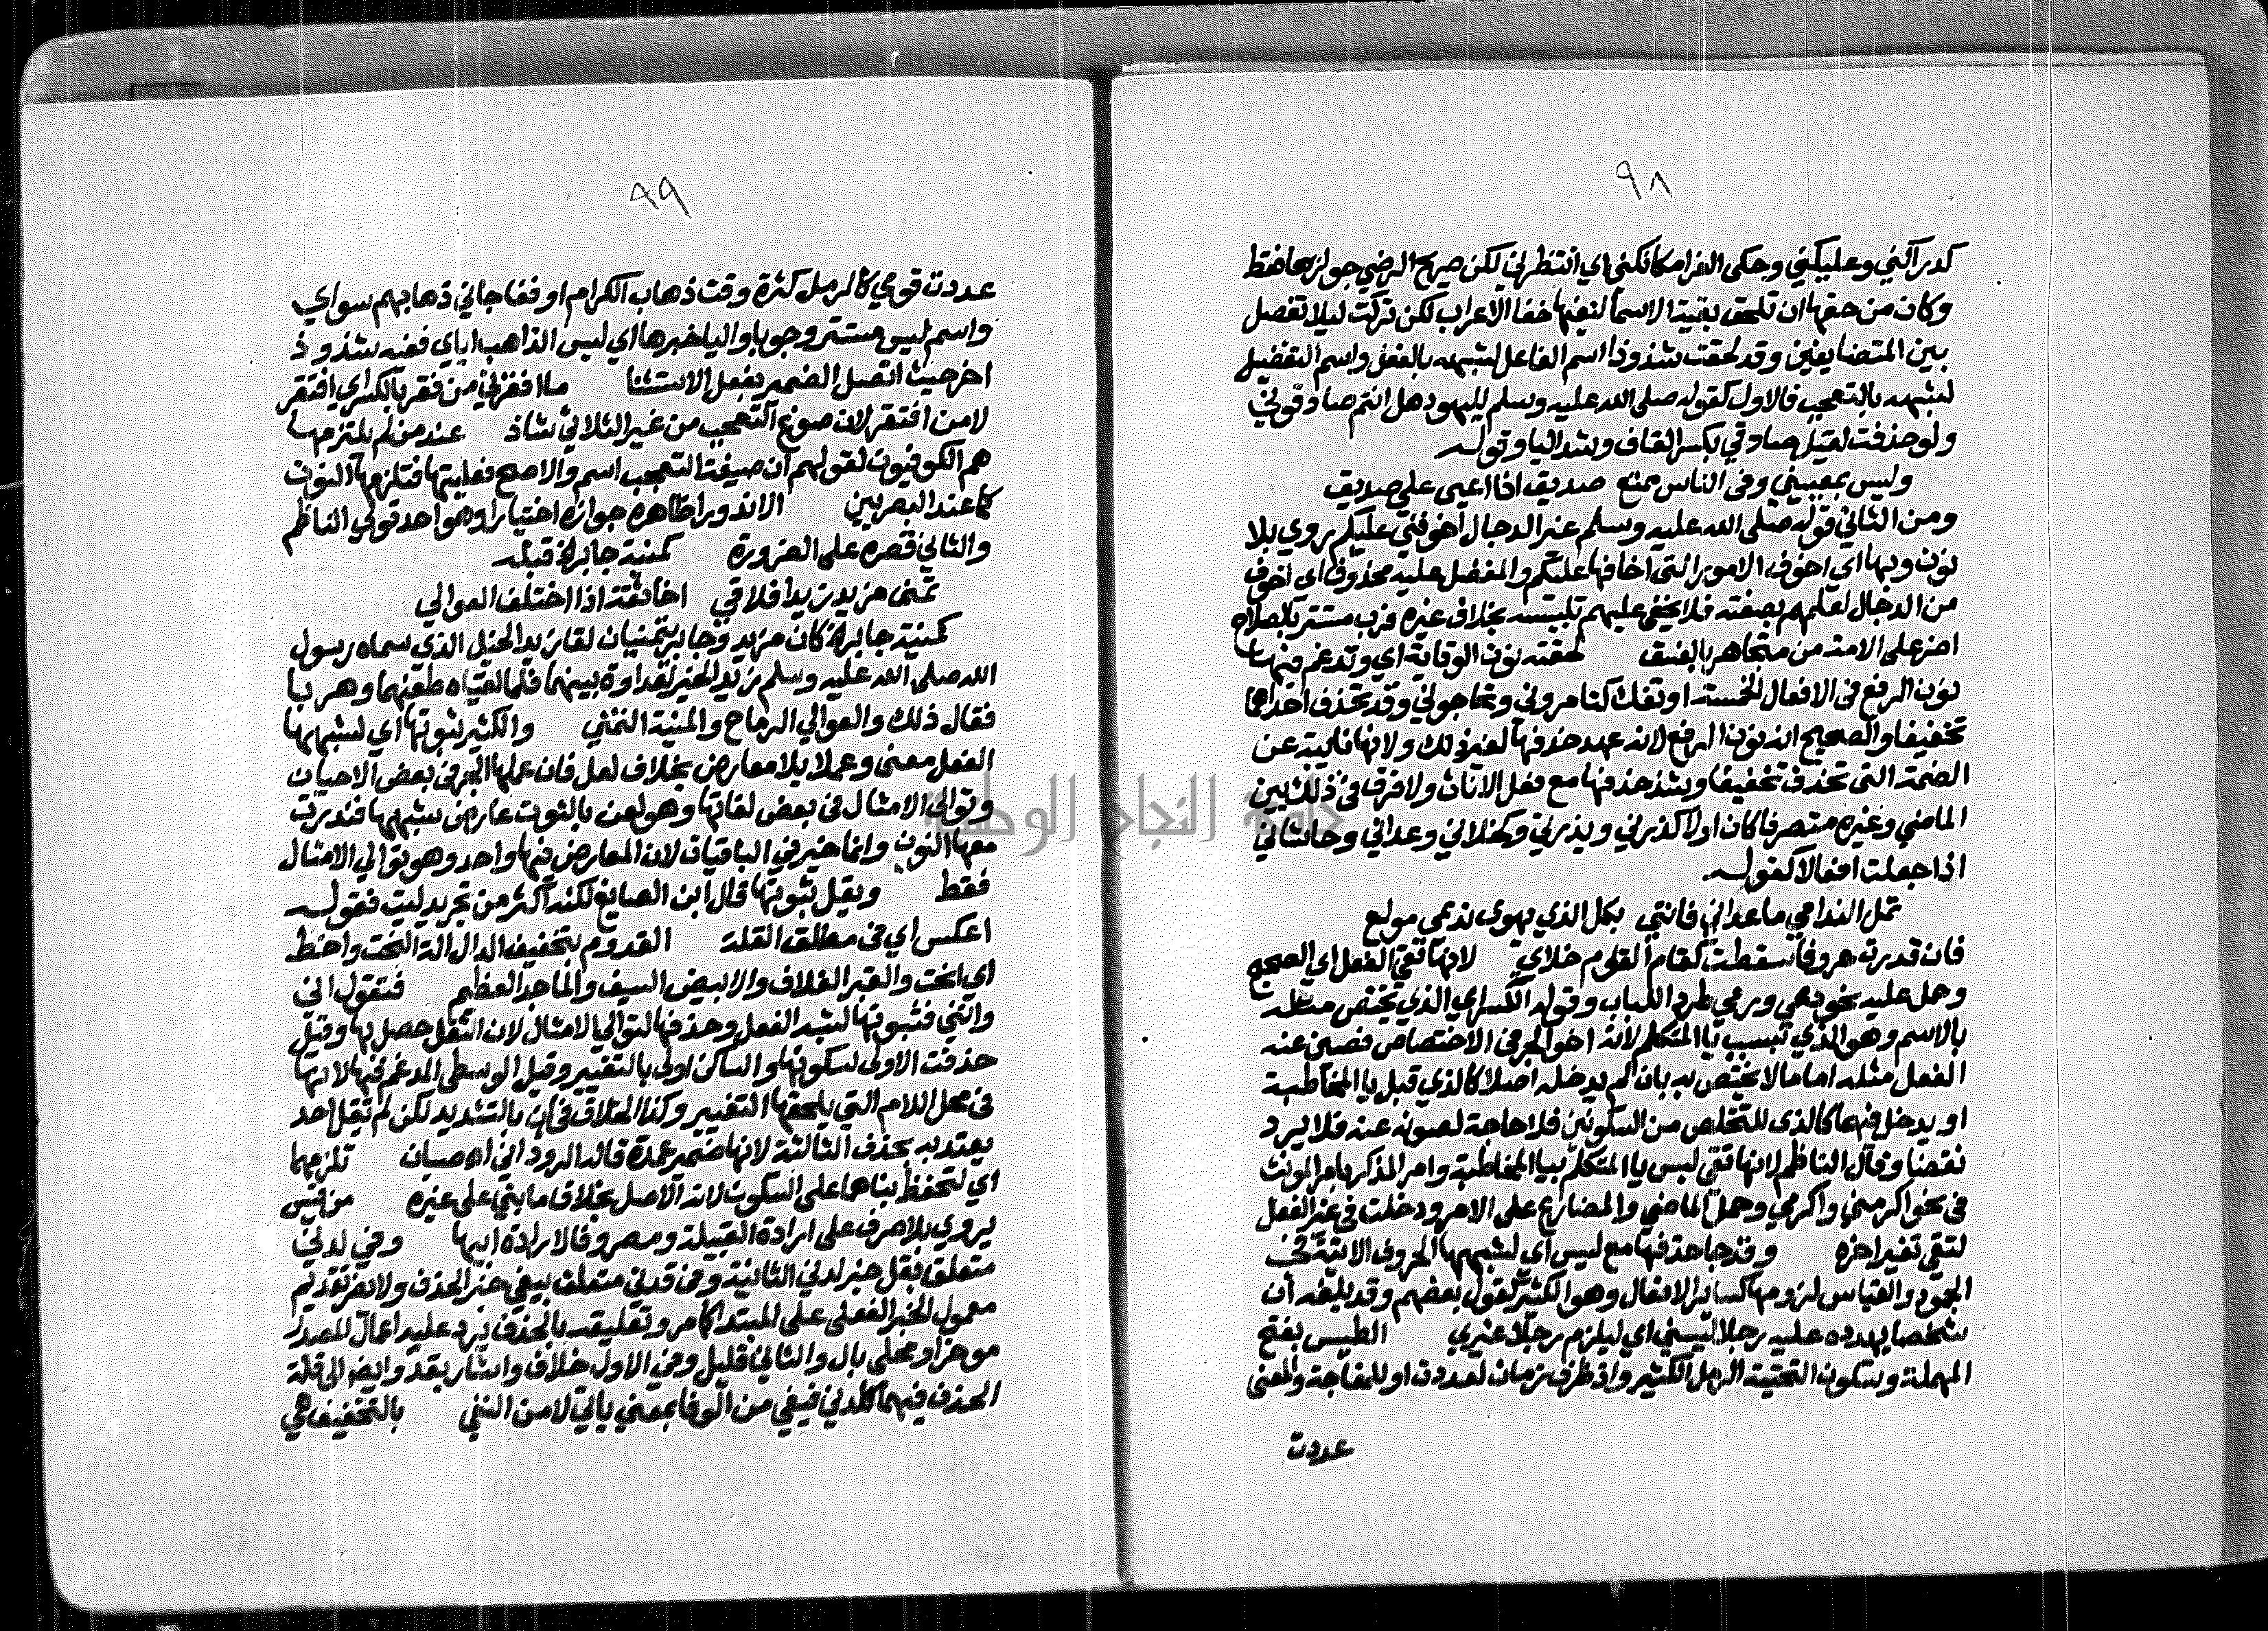 ٩٨
كدراكني وعليكني وحكى الفرا مكانكني اي انتظرني لكن صريح الرضي جوازها فقط
وكان من حقها ان تلحق بقية الاسما لتقيها خفا الاعراب لكن تركت ليلا تفصل
بين المتضايفين وقد لحقت شذوذا اسم الفاعل لشبهه بالفعل واسم التفضيل
لشبهه بالتعجب فالاول كقوله صلى الله عليه وسلم لليهود هل انتم صادقوني
ولو حذفت لقيل صادقي بكسر القاف وشد اليا وقوله
وليس بمعييني وفى الناس ممتع صديق اذا اعيى علي صديق
ومن الثاني قوله صلى الله عليه وسلم غير الدجال اخوفني عليكم روي بلا
نون وبها اي اخوف الامور التى اخافها عليكم والمفضل عليه محذوف اي اخوف
من الدجال لعلمهم بصفته فلا يخفى عليهم تلبيسه بخلاف غيره فرب مستتر بالصلاح
اضر على الامة من متجاهر بالفسق لحقته نون الوقاية اي وتدغم فيها
نون الرفع فى الافعال الخمسة او تفك كتامروني وتحاجوني وقد تحذف احداهما
تخفيفا والصحيح انه نون الرفع لانه عهد حذفها لغير ذلك ولانها نايبة عن
الضمة التى تحذف تخفيفا ويشذ حذفها مع فعل الاناث ولا فرق فى ذلك بين
الماضي وغيره متصرفا كان اولا كذرني ويذرني وكخلاني وعداني وحاشاني
اذا جعلت افعالا كقوله
تمل الندامي ما عداني فانني بكل الذي يهوى نديمي مولع
فان قدرت حروفا سقطت كقام القوم خلاي لانها تقي الفعل اي الصحيح
وحمل عليه نحو دعي ورمي طرد اللباب وقوله الكسر اي الذي يختص مثله
بالاسم وهو الذي تسبب يا المتكلم لانه اخو الجر فى الاختصاص فصين عنه
الفعل مثله اما ما لا يختص به بان لم يدخله اصلا كالذي قبل يا المخاطبة
او يدخل فيهما كالذى للتخلص من السكونين فلا حاجة لصونه عنه فلا يرد
نقضا وقال الناظم لانها تقي لبس يا المتكلم بيا المخاطبة وامر المذكر بامر المونث
فى نحو اكرمني واكرمي وحمل الماضي والمضارع على الامر ودخلت فى غير الفعل
لتقي تغير اخره وقد جا حذفها مع ليس اي لشبهها الحروف الاتية فى
الجمود والقياس لزومها كساير الافعال وهو الكثير كقول بعضهم وقد بلغه أن
شخصا يهدده عليه رجلا ليسني اي ليلزم رجلا غيري الطيس بفتح
المهملة وسكون التحتية الرمل الكثير واذ ظرف زمان لعددت او للمفاجاة والمعنى
عددت
٩٩
عددت قومي كالرمل كثرة وقت ذهاب الكرام او ففاجاني ذهابهم سواي
واسم ليس مستتر وجوبا واليا خبرها اي ليس الذاهب اياي ففيه شذوذ
اخر حيث اتصل الضمير بفعل الاستثنا ما افقرني من فقر بالكسر اي افتقر
لا من افتقر لان صوغ التعجب من غير الثلاثي شاذ عند من لم يلتزمها
هم الكوفيون لقولهم ان صيغة التعجب اسم والاصح فعليتها فتلزمها النون
كما عند البصريين الاندورا ظاهره جوازه اختيارا وهو احد قولي الناظم
والثاني قصره على الضرورة كمنية جابر قبله
تمنى مزيد زيدا فلاقي اخا ثقة اذا اختلف العوالي
كمنية جابر كان مزيد وجابر يتمنيان لقا زيد الخيل الذي سماه رسول
الله صلى الله عليه وسلم زيد الخير لعداوة بينهما فلما لقياه طعنهما وهربا
فقال ذلك والعوالي الرماح والمنية التمني والكثير ثبوتها اي لشبهها
الفعل معنى وعملا بلا معارض بخلاف لعل فان عملها الجر فى بعض الاحيان
وتوالي الامثال فى بعض لغاتها وهو لعن بالنون عارض شبهها فندرت
معها النون وانما خير في الباقيات لان المعارض فيها واحد وهو توالي الامثال
فقط ويقل ثبوتها قال ابن الصايغ لكنه اكثر من تجريد ليت فقوله
اعكس اي فى مطلق القلة القدوم بتخفيف الدال الة النحت واخط
اي انحت والقبر الغلاف والابيض السيف والماجد العظيم فتقول اني
وانني فثبوتها لشبه الفعل وحذفها لتوالي الامثال لان الثقل حصل بها وقيل
حذفت الاولى لسكونها والساكن اولى بالتغيير وقيل الوسطى المدغم فيها لانها
فى محل اللام التي يلحقها التغيير وكذا الخلاف فى ان بالتشديد لكن لم يقل احد
يعتد به بحذف الثالثة لانها ضمير عمدة قاله الروداني اه صبان تلزمها
اي لتحفظ بناها على السكون لانه الاصل بخلاف ما بني على غيره من قيس
يروي بلا صرف على ارادة القبيلة ومصروفا لارادة ابيها وفي لدني
متعلق بقل خبر لدني الثانية وفى قدني متعلق بيفي خبر الحذف ولا يضر تقديم
معمول الخبر الفعلي على المبتدا كما مر وتعليقه بالحذف يرد عليه اعمال المصدر
موخرا ومحلى بال والثاني قليل وفي الاول خلاف واشار بقد وايضا لى قلة
الحذف فيهما كلدني فيفي من الوفا بمعنى ياتي لا من النفي بالتخفيف هي